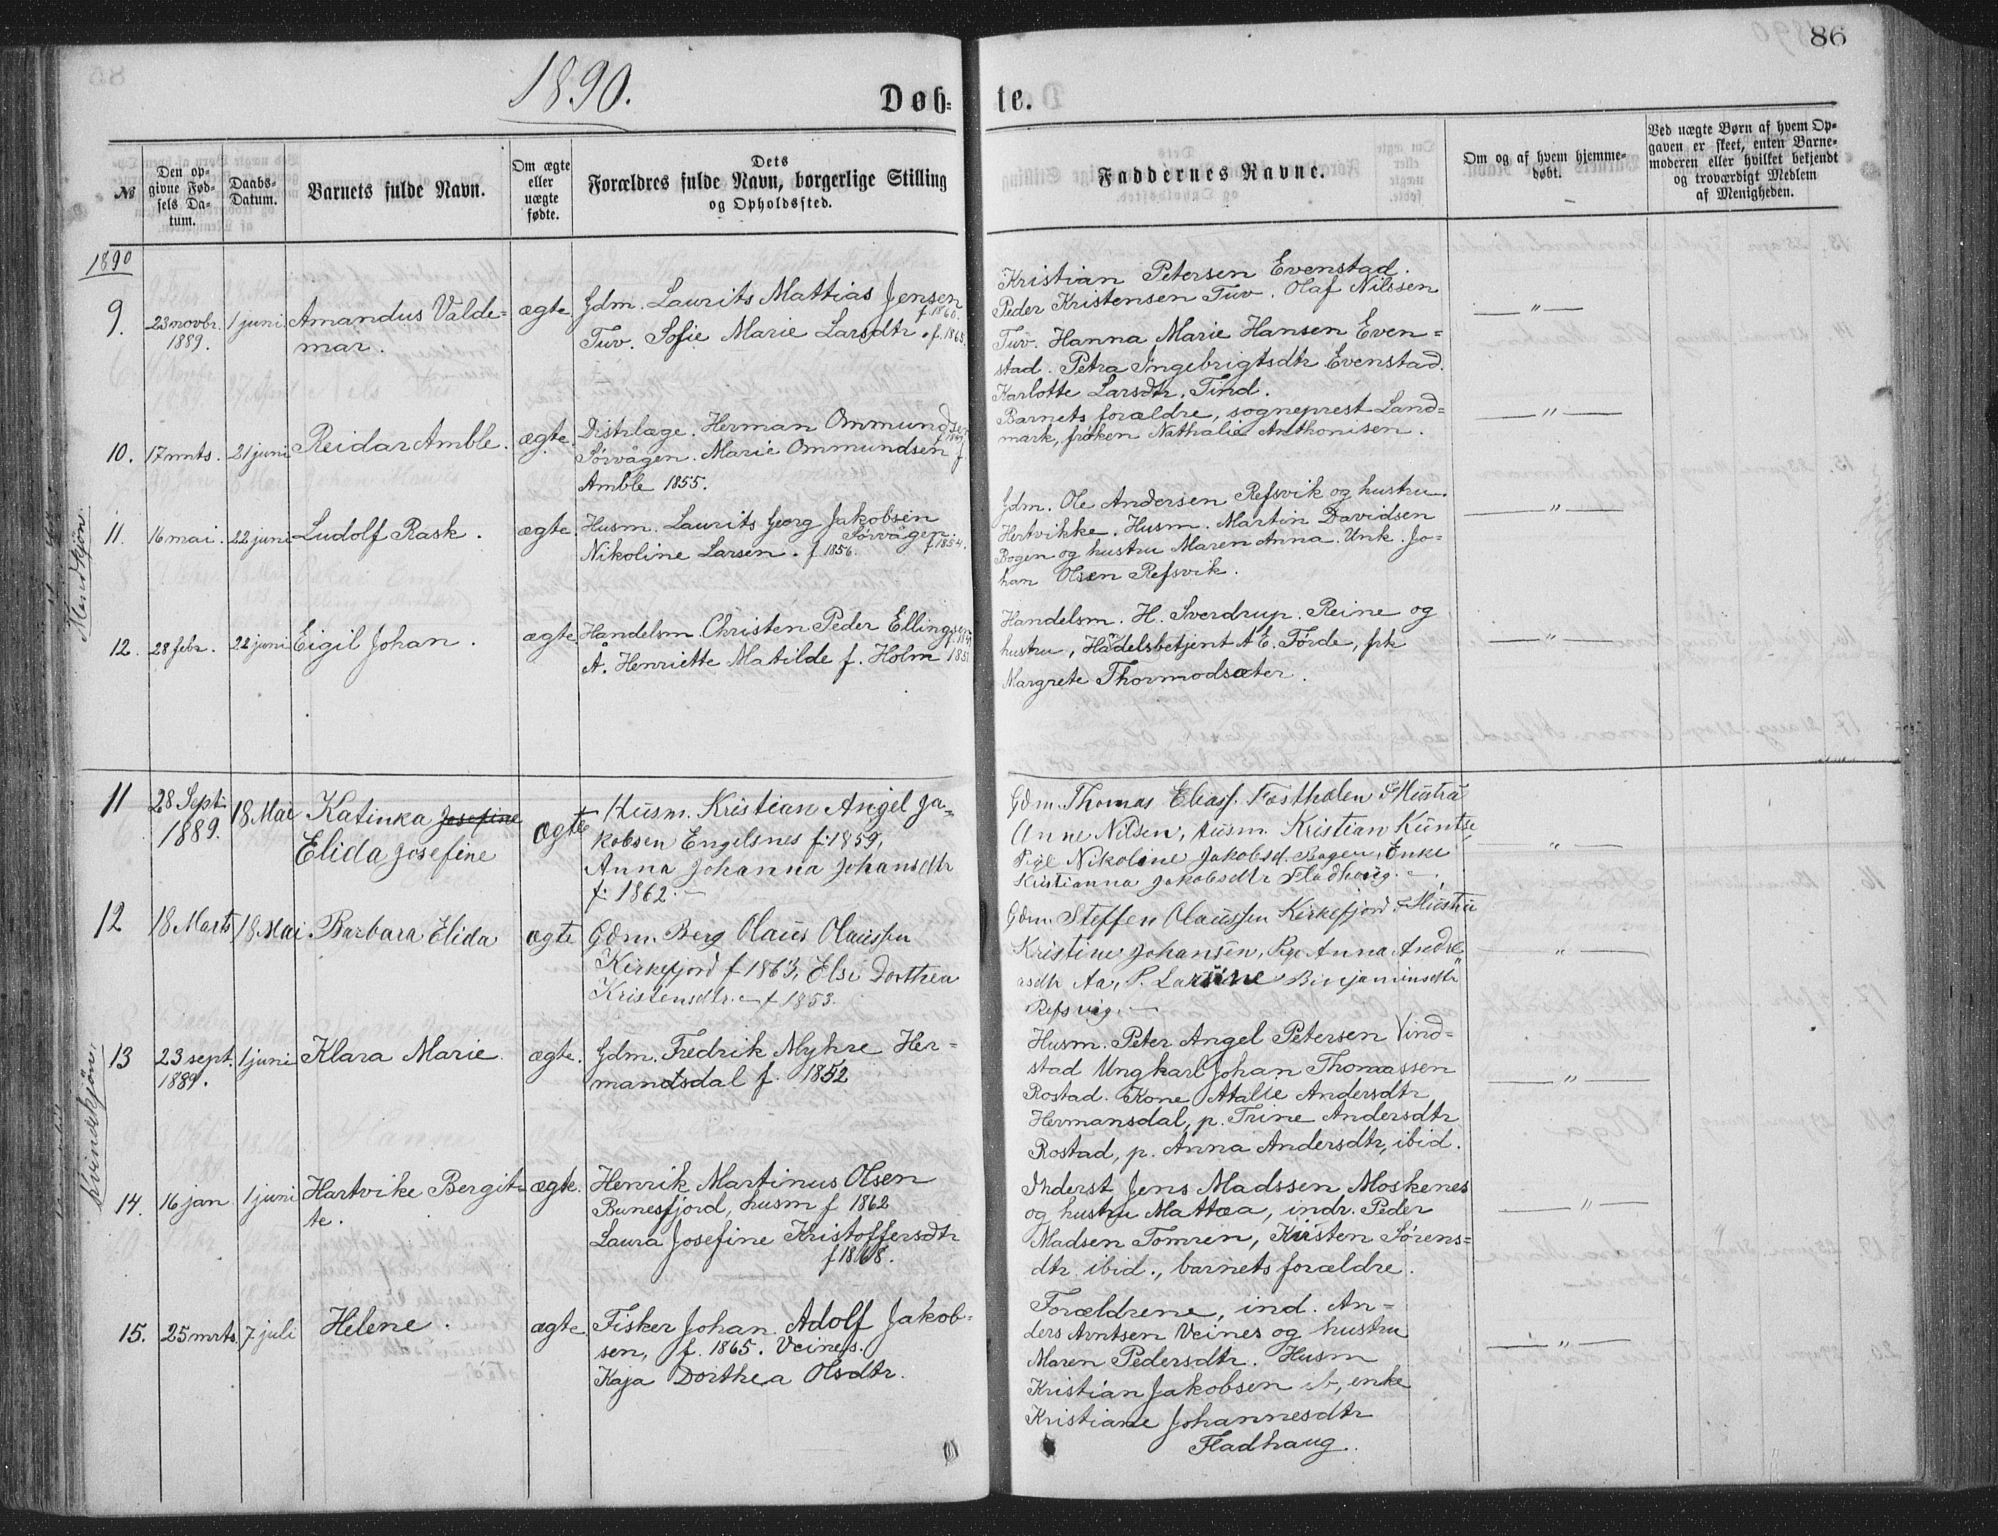 1890.
86
Døb-
te.
№
Den op-
givne Fød-
sels Da-
tum.
Daabs-
Datum.
Barnets fulde Navn.
Om ægte
eller
uægte
fødte.
Dets
Forældres fulde Navn, borgerlige Stilling
og Opholdssted.
Faddernes Navne.
Om og af hvem hjemme-
døbt.
Ved uægte Børn af hvem Op-
gaven er skeet, enten Barne-
moderen eller hvilket bekjendt
og troværdigt Medlem
af Menigheden.
1890
Mandkjøn.
9. 23 novbr. 1 juni Amandus Valde- ægte. Gdm. Laurits Mattias Jensen
1889. mar. f. 1860.
Tuv. Sofie Marie Larsdtr. f. 1865.
Kristian Petersen Evenstad.
Peder Kristensen Tuv. Olaf Nilssen
Tuv. Hanna Marie Hansen Even=
stad. Petra Ingebrigtsdtr Evenstad.
Karlotte Larsdtr. Tind.
— " —
10. 17 mrts. 21 juni Reidar Amble. ægte. Distrlæge. Herman Ommundsen
Sørvågen. Marie Ommundsen f
Amble 1855.
Barnets forældre, sogneprest Land=
mark, frøken Nathalie Anthonisen.
— " —
11. 16 mai. 22 juni Ludolf Rask. ægte. Husm. Laurits Georg Jakobsen
Sørvågen. f. 1854.
Nikoline Larsen. f. 1856.
Gdm. Ole Andersen Refsvik og hustru.
Hertvikke. Husm. Martin Davidsen
Bogen og hustru Maren Anna. Unk. Jo-
han Olsen Refsvik.
— " —
12. 28 febr. 22 juni Eigil Johan. ægte. Handelsm. Christen Peder Ellingsen
Å. Henriette Matilde f. Holm
Handelsm. H. Sverdrup. Reine og
hustru, Handelsbetjent A E. Førde, frk
Margrete Thormodsæter.
— " —
Kvindekjøn.
11 28 Sept. 18 Mai Katinka Josefine ægte Husm. Kristian Angel Ja-
1889. Elida Josefine kobsen Engelsnes f. 1859,
Anna Johanna Johansdtr
f. 1862. —
Gdm. Thomas Eliass. Fastholen & Hustru
Anne Nilsen, Husm. Kristian Kuntse
Pige Nikoline Jakobsd. Bogen, Enke
Kristianna Jakobsdtr Fladhoug. —
— " —
12 18 Marts 18 Mai Barbara Elida ægte Gdm. Berg Olaus Olaussen
Kirkefjord f 1863, Else Dorthea
Kristensdtr. — f 1853.
Gdm. Steffen Olaussen Kirkefjord & Hustru
Kristine Johansen, Pige Anna Andre
asdtr Aa, P. Larsine Binjaminsdtr
Refsvig. —
— " —
13 23 sept. 1 juni Klara Marie. ægte. Gdm. Fredrik Myhre Her-
1889. mandsdal f. 1852
Husm. Peter Angel Petersen Vind=
stad Ungkarl Johan Thomassen
Rostad. Kone Atalie Andersdtr
Hermansdal, p. Trine Andersdtr
Rostad, p. Anna Andersdtr, ibid.
— " —
14. 16 jan 1 juni Hartvike Bergit- ægte. Henrik Martinus Olsen
te. Bunesfjord, husm f 1862
Laura Josefine Kristoffersdtr
f 1868.
Inderst Jens Madssen Moskenes
og hustru Mattea, indr. Peder
Madsen Tomren, Kirsten Sørens=
dtr ibid., barnets forældre.
— " —
15. 25 mrts. 7 juli Helene. ægte. Fisker Johan Adolf Jakob-
sen, f. 1865. Veines.
Kaja Dorthea Olsdtr.
Forældrene, ind. An=
ders Arntsen Veines og hustru
Maren Pedersdtr. Husm
Kristian Jakobsen ib, enke
Kristiane Johannesdtr
Fladhaug.
— " —